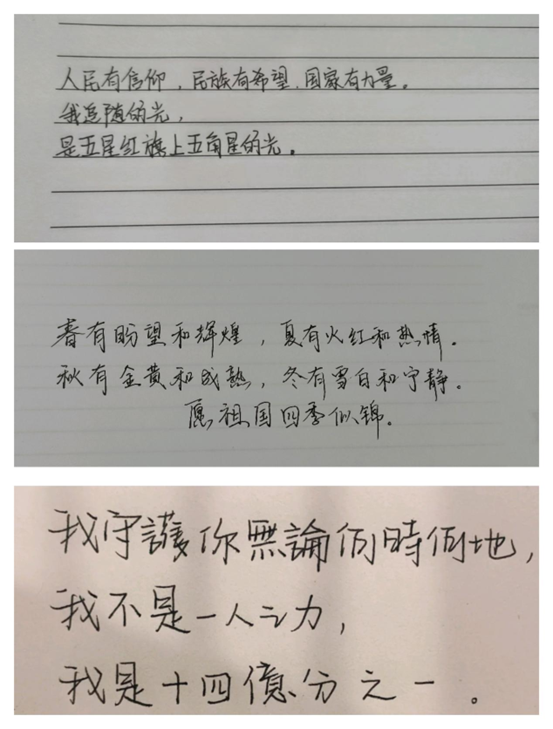 人民有信仰，民族有希望，国家有力量。
我追随的光，
是五星红旗上五角星的光。
春有盼望和辉煌，夏有火红和热情。
秋有金黄和成熟，冬有雪白和宁静。
愿祖国四季似锦。
我守護你無論何時何地，
我不是一人之力，
我是十四億分之一。